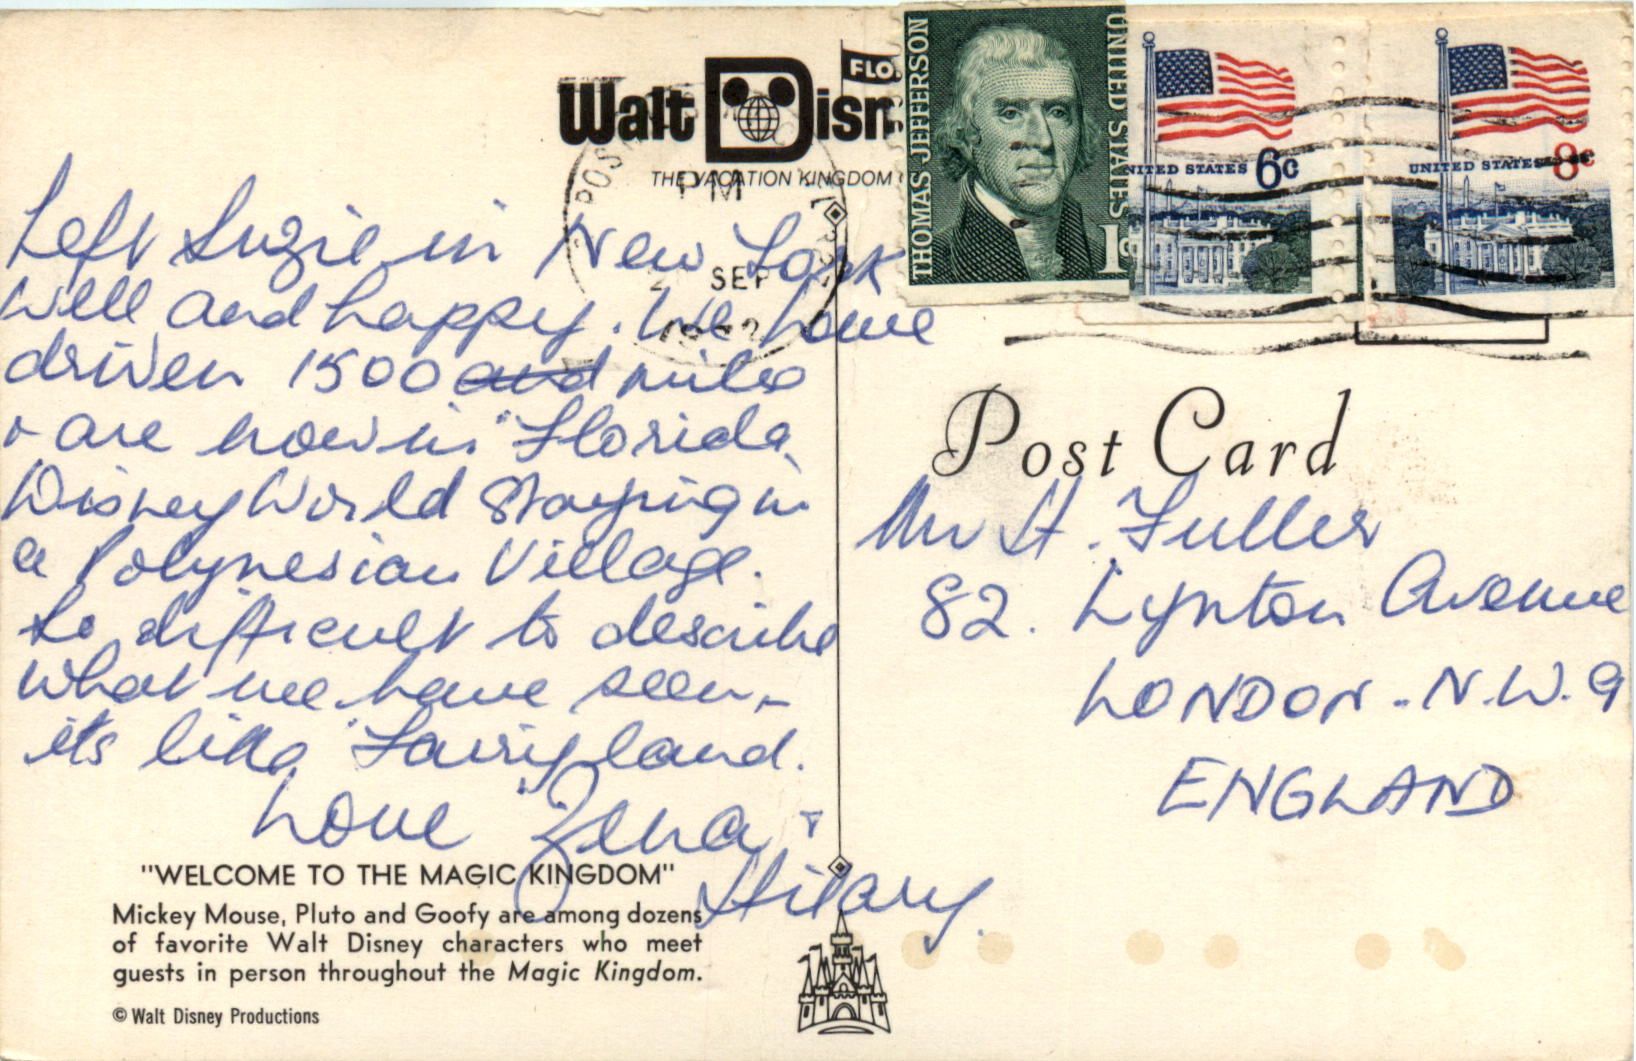 Walt Disn
FLO
THE VACATION KINGDOM
PM
SEP
THOMAS JEFFERSON
UNITED STATES
1c
UNITED STATES 6c
UNITED STATES 8c
Left Suzie in New York
well and happy. We have
driven 1500 and miles
+ are now in "Florida
Disney World staying in
a Polynesian Village.
So difficult to describe
what we have seen -
its like "Fairyland.
Love Zena +
Hilary.
"WELCOME TO THE MAGIC KINGDOM"
Mickey Mouse, Pluto and Goofy are among dozens
of favorite Walt Disney characters who meet
guests in person throughout the Magic Kingdom.
© Walt Disney Productions
Post Card
Mr H. Fuller
82. Lynton Avenue
LONDON. N.W.9
ENGLAND